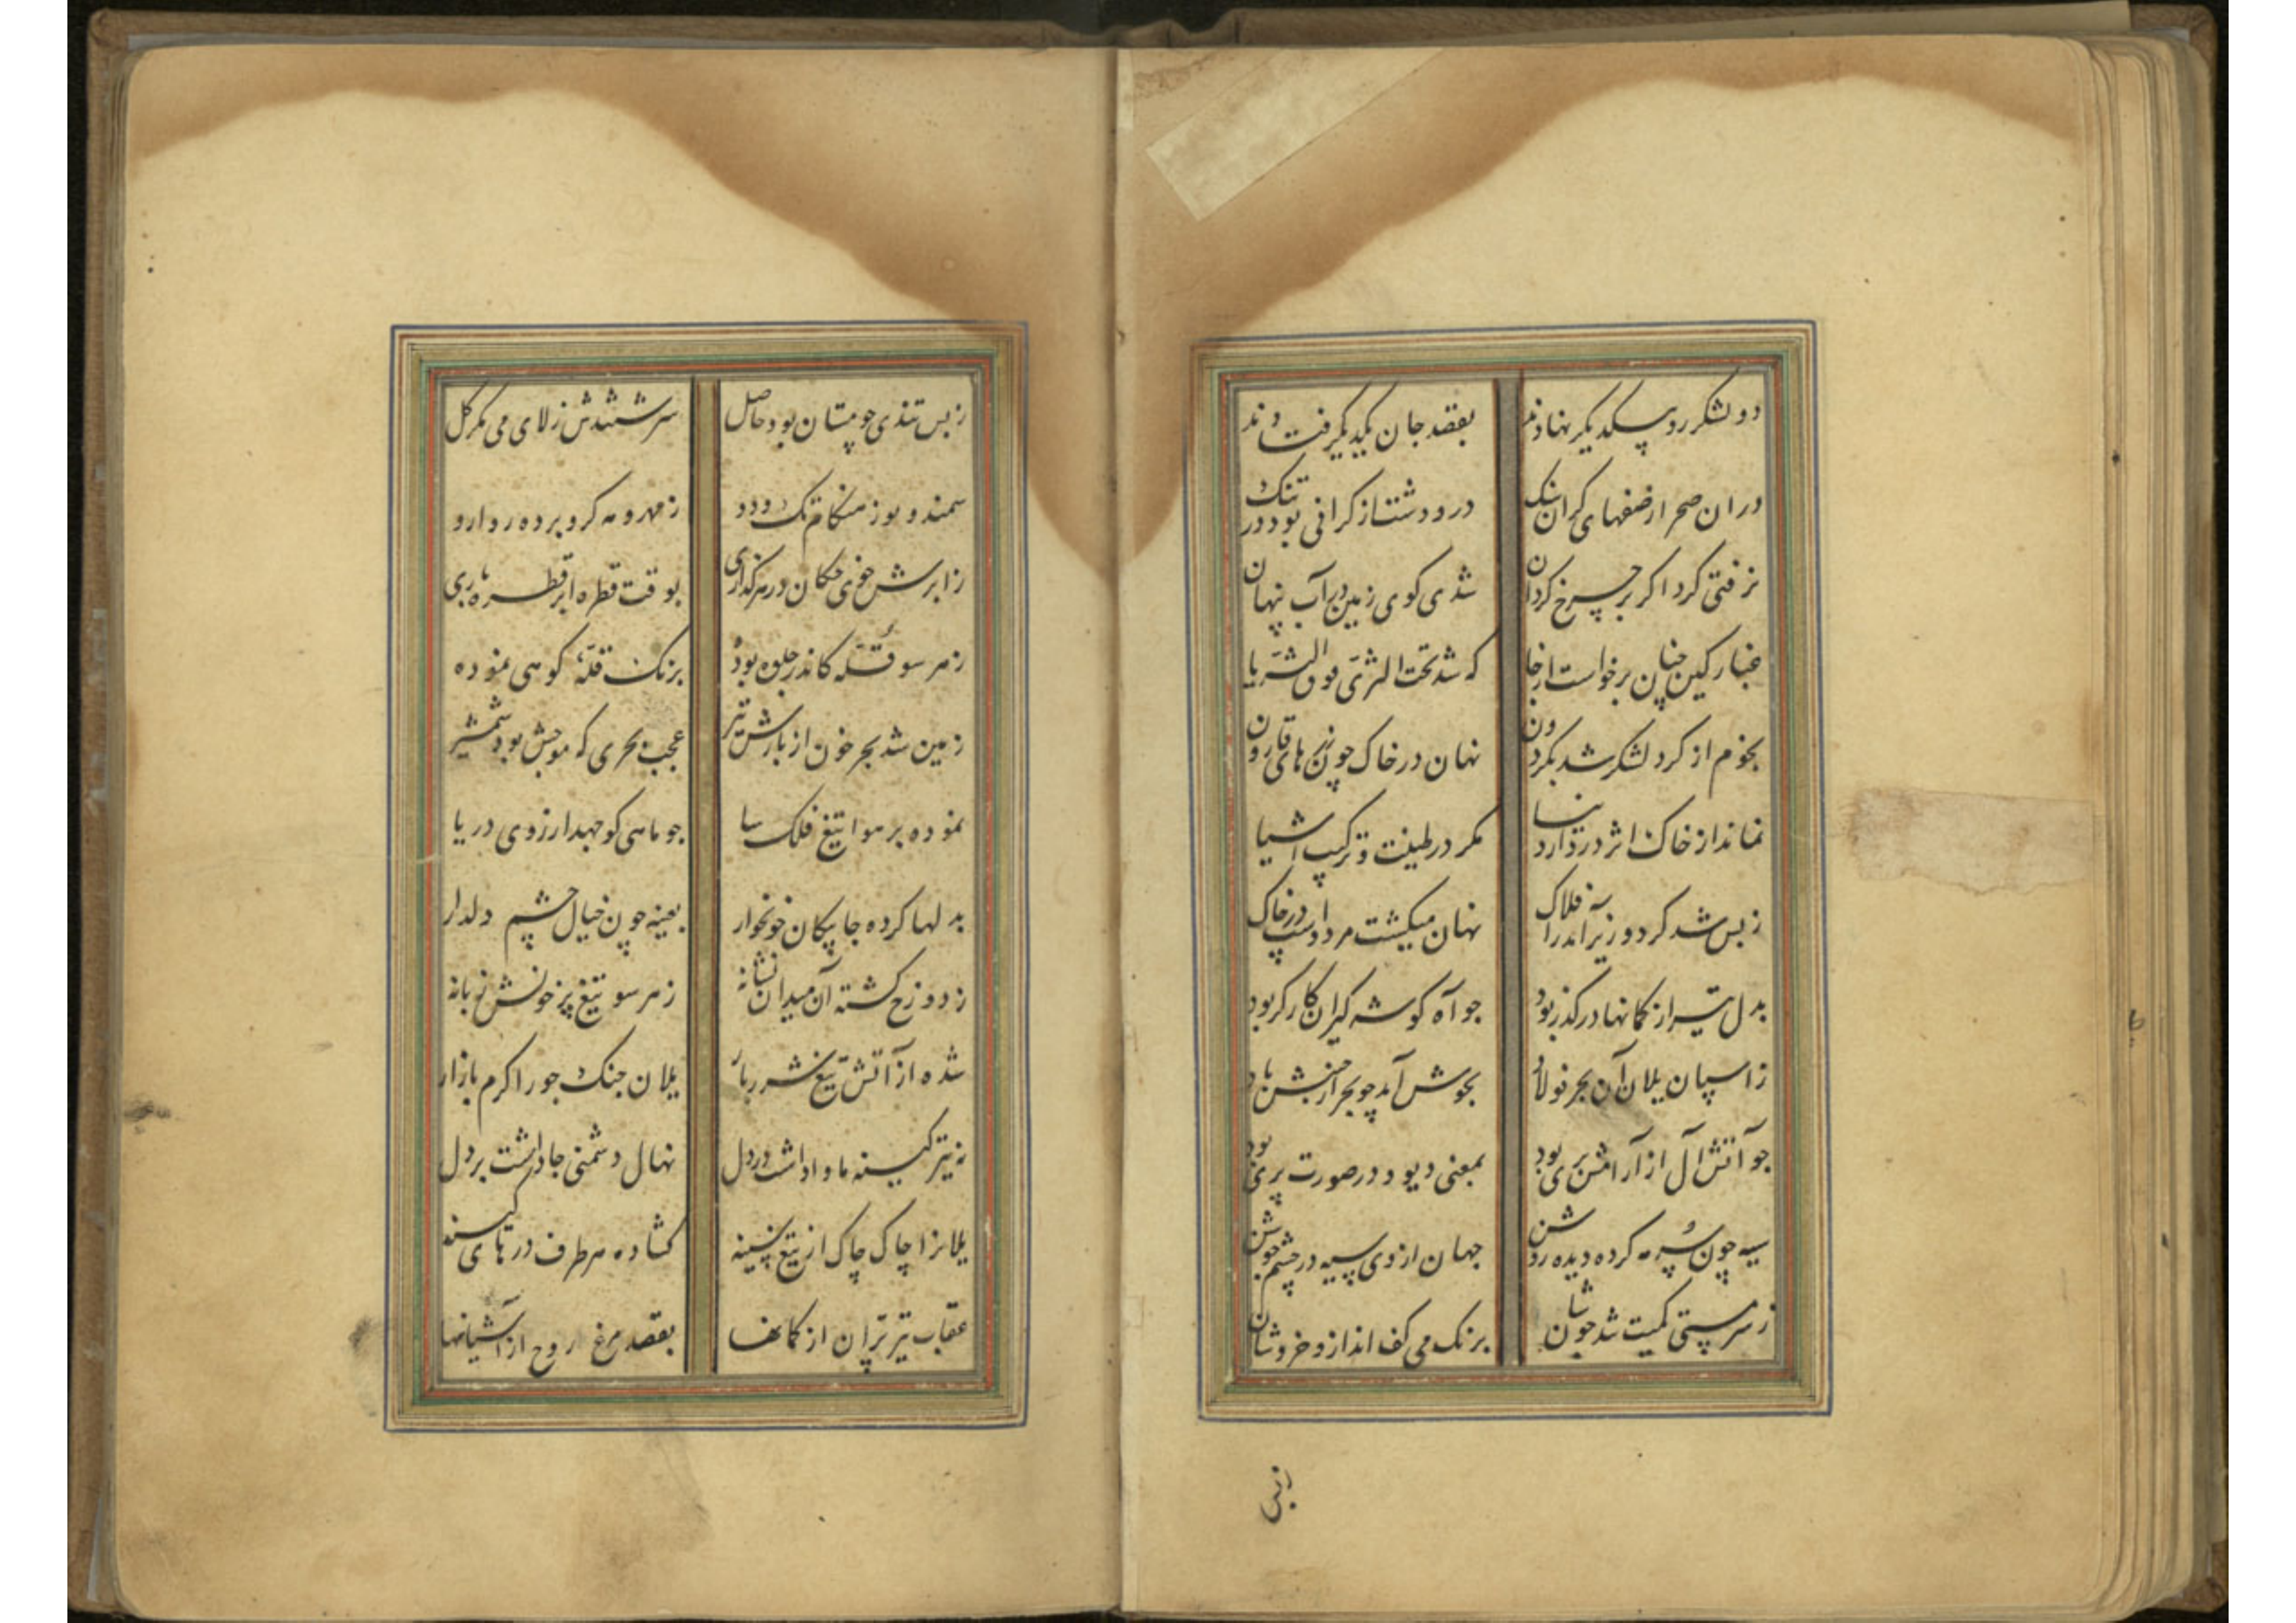 دو لشکر رو بیکدیگر نهادند بقصد جان یکدیگر فتادند
دران صحرا ز صفهای کران سنک درو دشت از کرانی بود در تنک
نرفتی کرد اکر بر چرخ کردان شدی کوی زمین در آب پنهان
غبار کین چنان برخواست از جا که شد تحت الثری فوق الثریا
نجوم از کرد لشکر شد بکردون نهان در خاک چون زرهای قارون
نماند از خاک اثر در دار دنیا مکر در طینت و ترکیب اشیا
ز بس شد کرد و زیر آمد ز افلاک نهان میکشت مرد و اسب در خاک
بدل تیر از کمانها در کذر بود جو آه کوشه کیران کارکر بود
ز اسپان یلان آن بحر فولاد بجوش آمد چو بحر از جنبش باد
جو آتش آل از آرامش بری بود بمعنی دیو و در صورت پری بود
سیه چون سرمه کرده دیده روشن جهان از وی سیه در چشم جوشن
ز سرمستی کمیت شد جوشان برنک می کف انداز و خروشان
ز بس
ز بس تندی جو مستان بود حاصل سرشتندش ز لای می مکر کل
سمند و بور ز هنکام تک و دو ز مهر و مه کرو برده روارو
ز ابرش خوی چکان در هر کذاری بوقت قطره ابر قطره باری
ز هر سو قله کاندر جلوه بوده برنک قلهٔ کوهی نموده
زمین شد بحر خون از بارش تیر عجب بحری که موجش بود شمشیر
نموده بر هوا تیغ فلک سا جو ماهی کو جهد از روی دریا
بدلها کرده جا پیکان خونخوار بعینه چون خیال چشم دلدار
ز دوزخ کشته آن میدان نشانه ز هر سو تیغ پر خونش زبانه
شده از آتش تیغ شرربار یلان جنک جو را کرم بازار
نه تیر کینه ماوا داشت در دل نهال دشمنی جا داشت بر دل
یلانرا چاک چاک از تیغ سینه کشاده هر طرف درهای کینه
عقاب تیر پران از کمانها بقصد مرغ روح از آشیانها